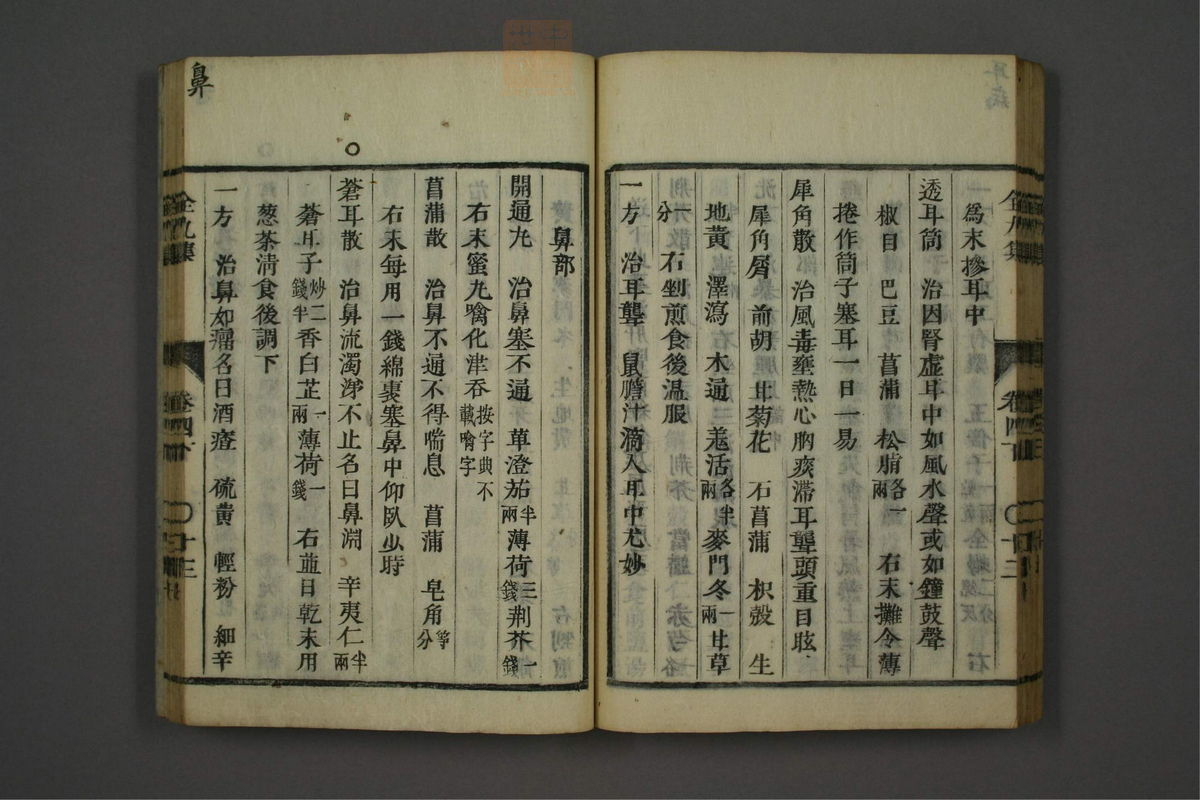 爲末摻耳中
透耳筒　治因腎虛耳中如風水聲或如鐘鼓聲
椒目　巴豆　菖蒲　松脂各一兩　右末攤令薄
捲作筒子塞耳一日一易
犀角散　治風毒壅熱心胸痰滯耳聾頭重目眩
犀角屑　前胡　甘菊花　石菖蒲　枳殼　生
地黃　澤瀉　木通　羌活各半兩　麥門冬一兩　甘草
一分　右剉煎食後温服
一方　治耳聾　鼠膽汁滴入耳中尤妙
鼻部
開通丸　治鼻塞不通　草澄茄半兩　薄荷三錢　荆芥一錢
右末蜜丸噙化津吞按字典不載噙字
菖蒲散　治鼻不通不得喘息　菖蒲　皂角等分
右末每用一錢綿裹塞鼻中仰臥少時
蒼耳散　治鼻流濁涕不止名曰鼻淵　辛夷仁半兩
蒼耳子炒二錢半　香白芷一兩　薄荷一錢　右並日乾末用
葱茶淸食後調下
一方　治鼻如癅名曰酒㾴　硫黃　輕粉　細辛
鼻
卷四下
十三